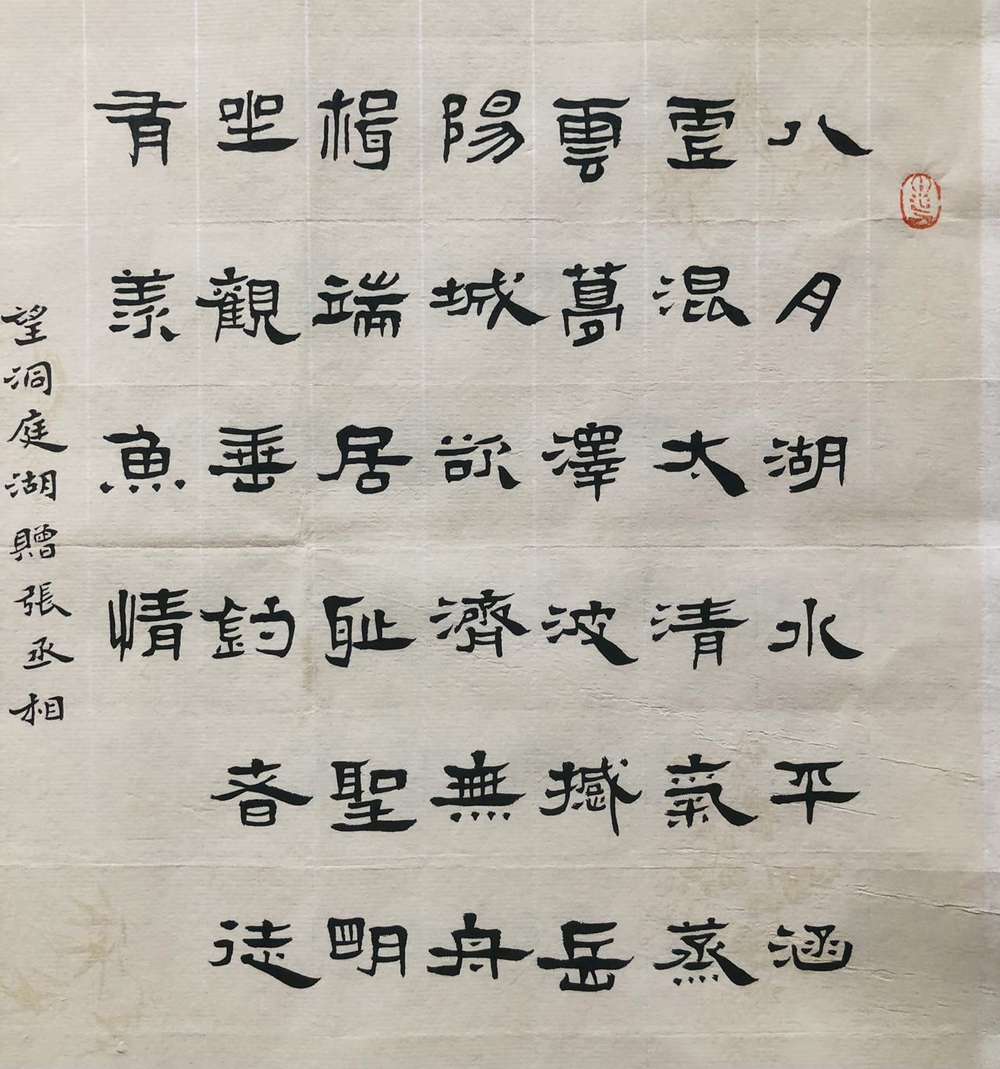 八月湖水平涵
虛混太清氣蒸
雲夢澤波撼岳
陽城欲濟無舟
楫端居恥聖明
坐觀垂釣者徒
有羨魚情
望洞庭湖贈張丞相